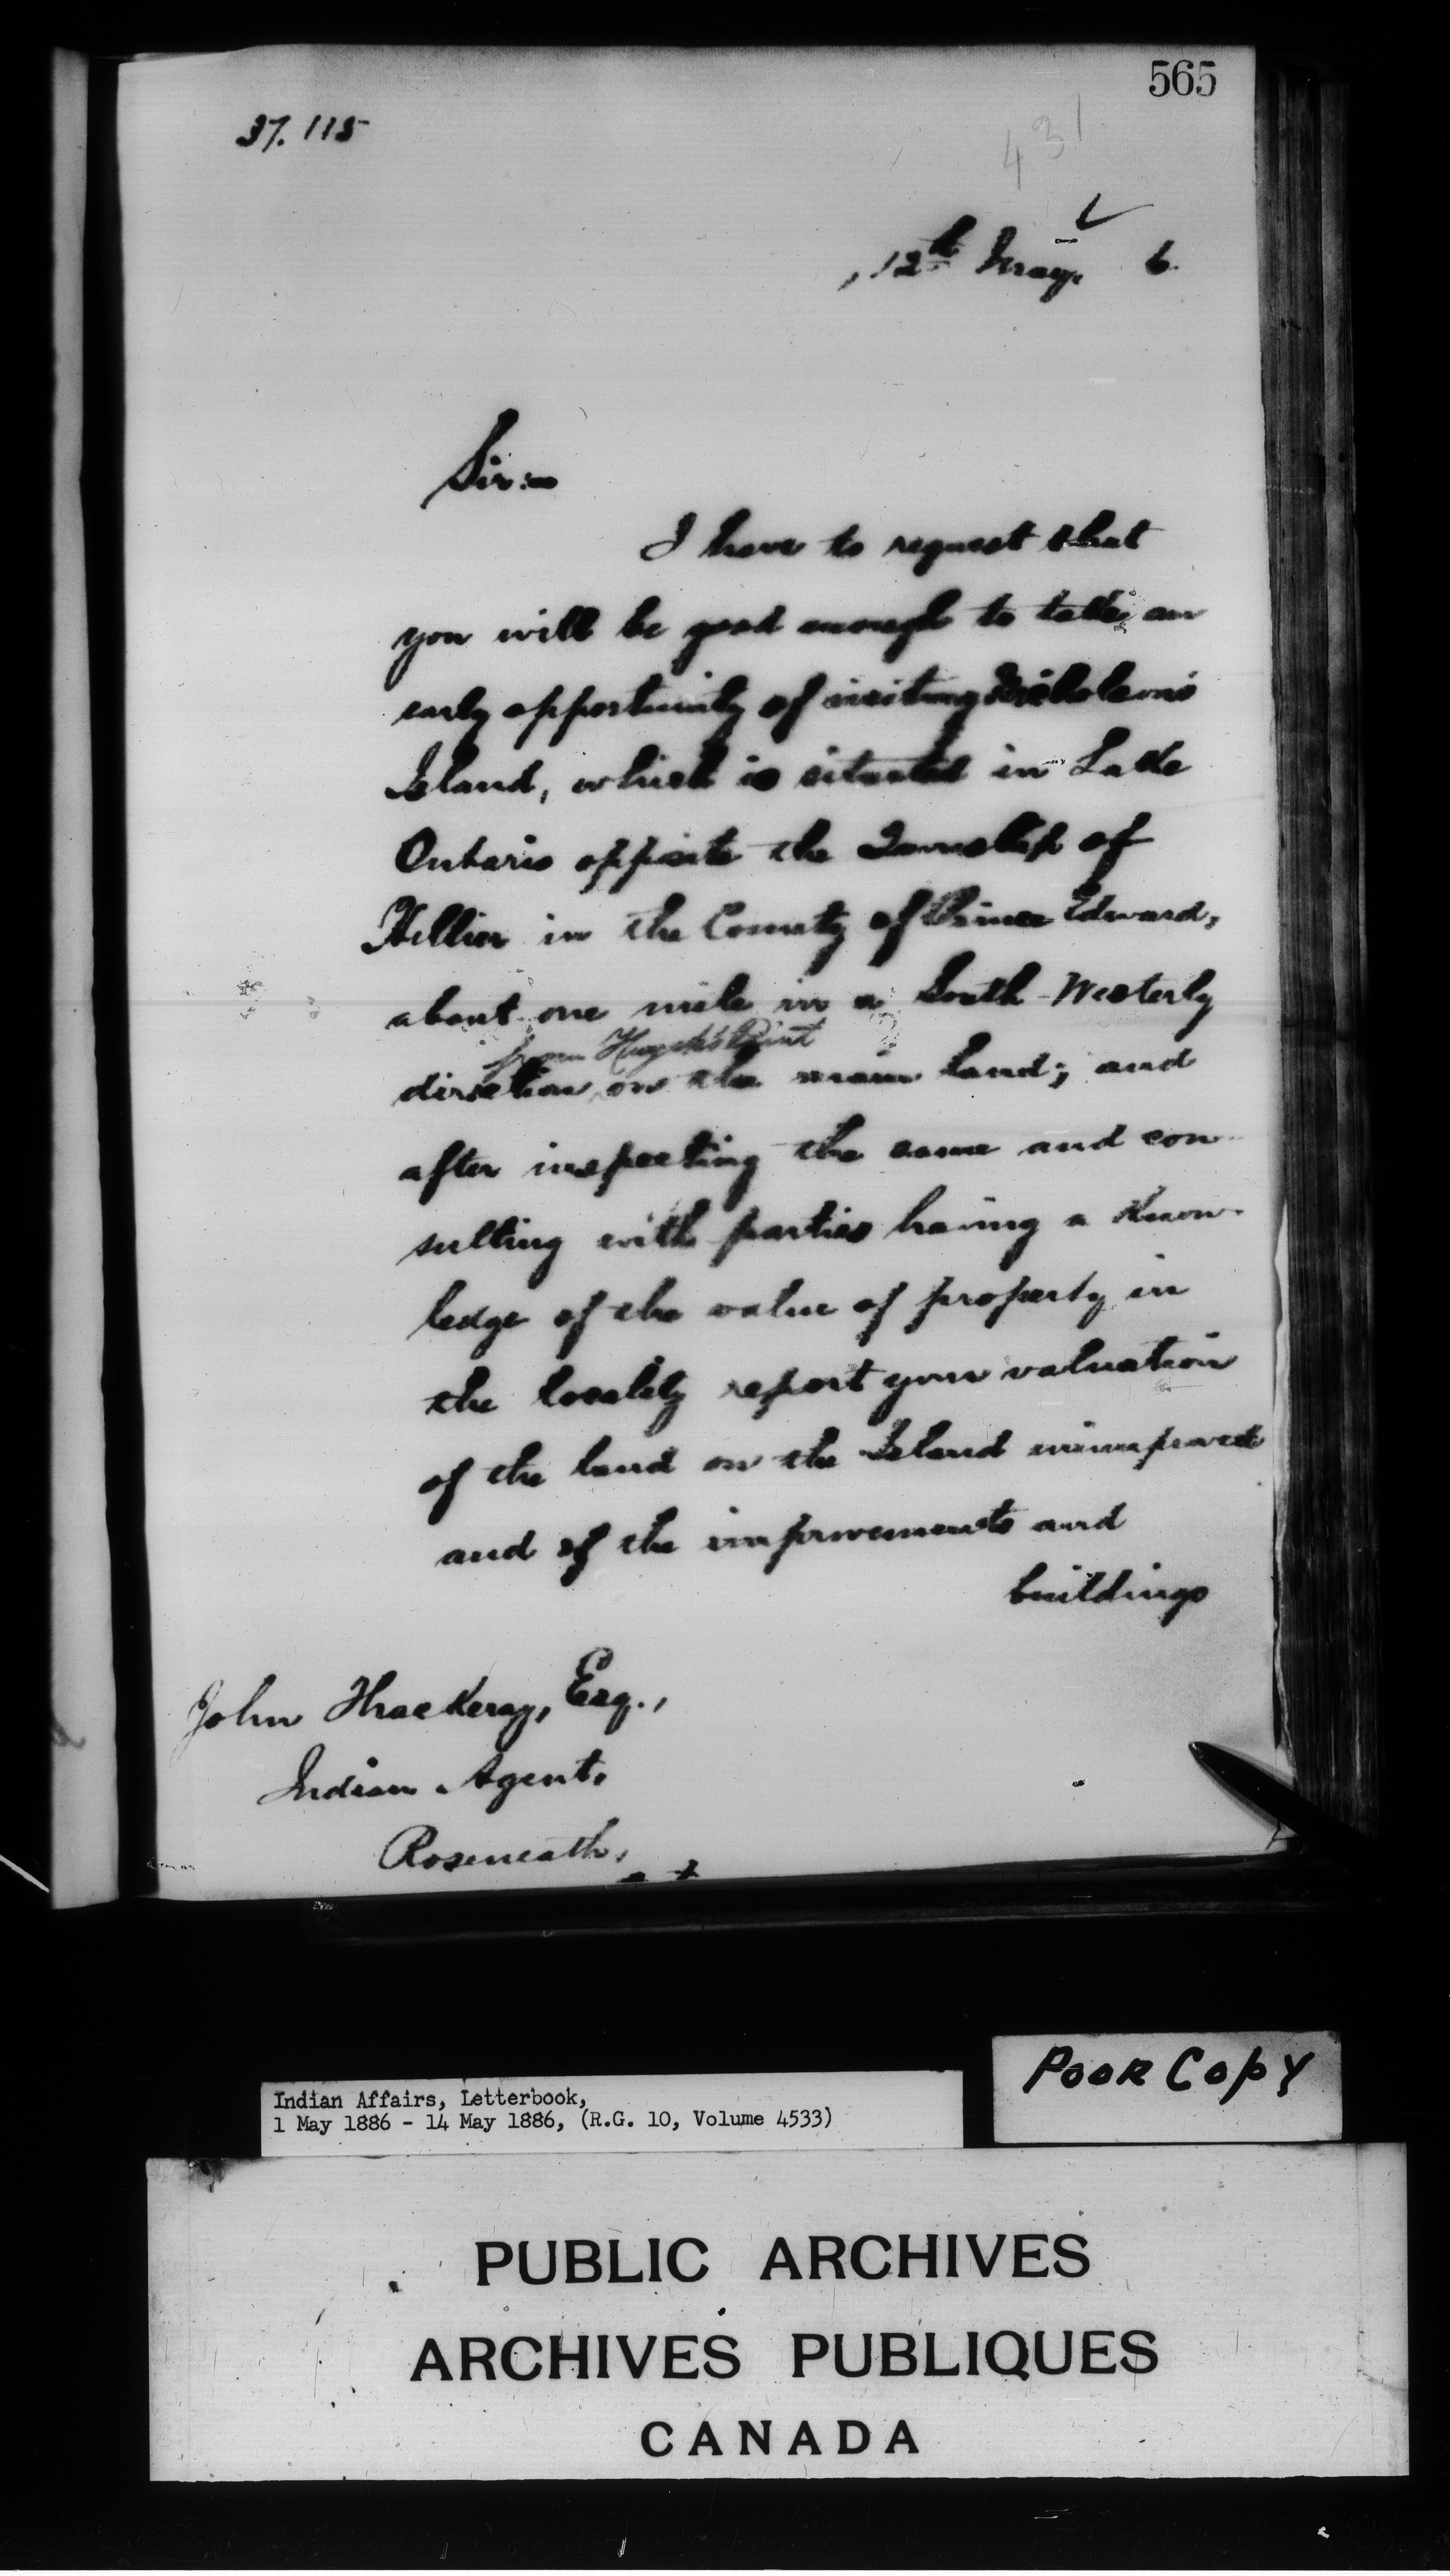 565
37.115
431
12th May. 6.
Sir:-
I have to request that
you will be good enough to take an
early opportunity of visiting Nicholson's
Island, which is situated in Lake
Ontario opposite the Township of
Hillier in the County of Prince Edward,
about one mile in a South-Westerly
from Huyck's Point
direction on the main land; and
after inspecting the same and con-
sulting with parties having a know-
ledge of the value of property in
the locality report your valuation
of the land on the Island unimproved
and of the improvements and
buildings
John Thackeray, Esq.,
Indian Agent,
Roseneath,
POOR COPY
Indian Affairs, Letterbook,
1 May 1886 - 14 May 1886, (R.G. 10, Volume 4533)
PUBLIC ARCHIVES
ARCHIVES PUBLIQUES
CANADA